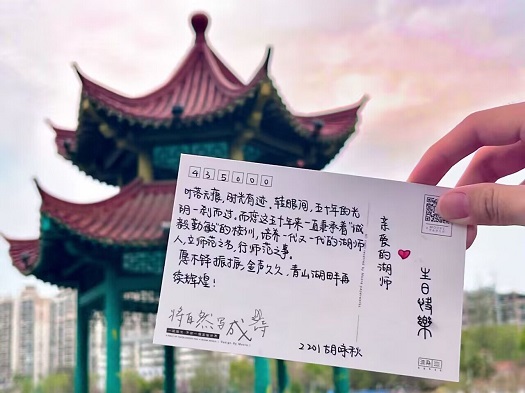 435000
叶落无痕，时光有迹。转眼间，五十年的光
阴一刹而过，而您这五十年来一直秉承着“诚
毅勤敏”的校训，培养一代又一代的湖师
人，立师范之书，行师范之事。
愿木铎振振，金声久久，青山湖畔再
续辉煌！
将自然写成诗
亲爱的湖师
生日快樂
2201胡咏秋